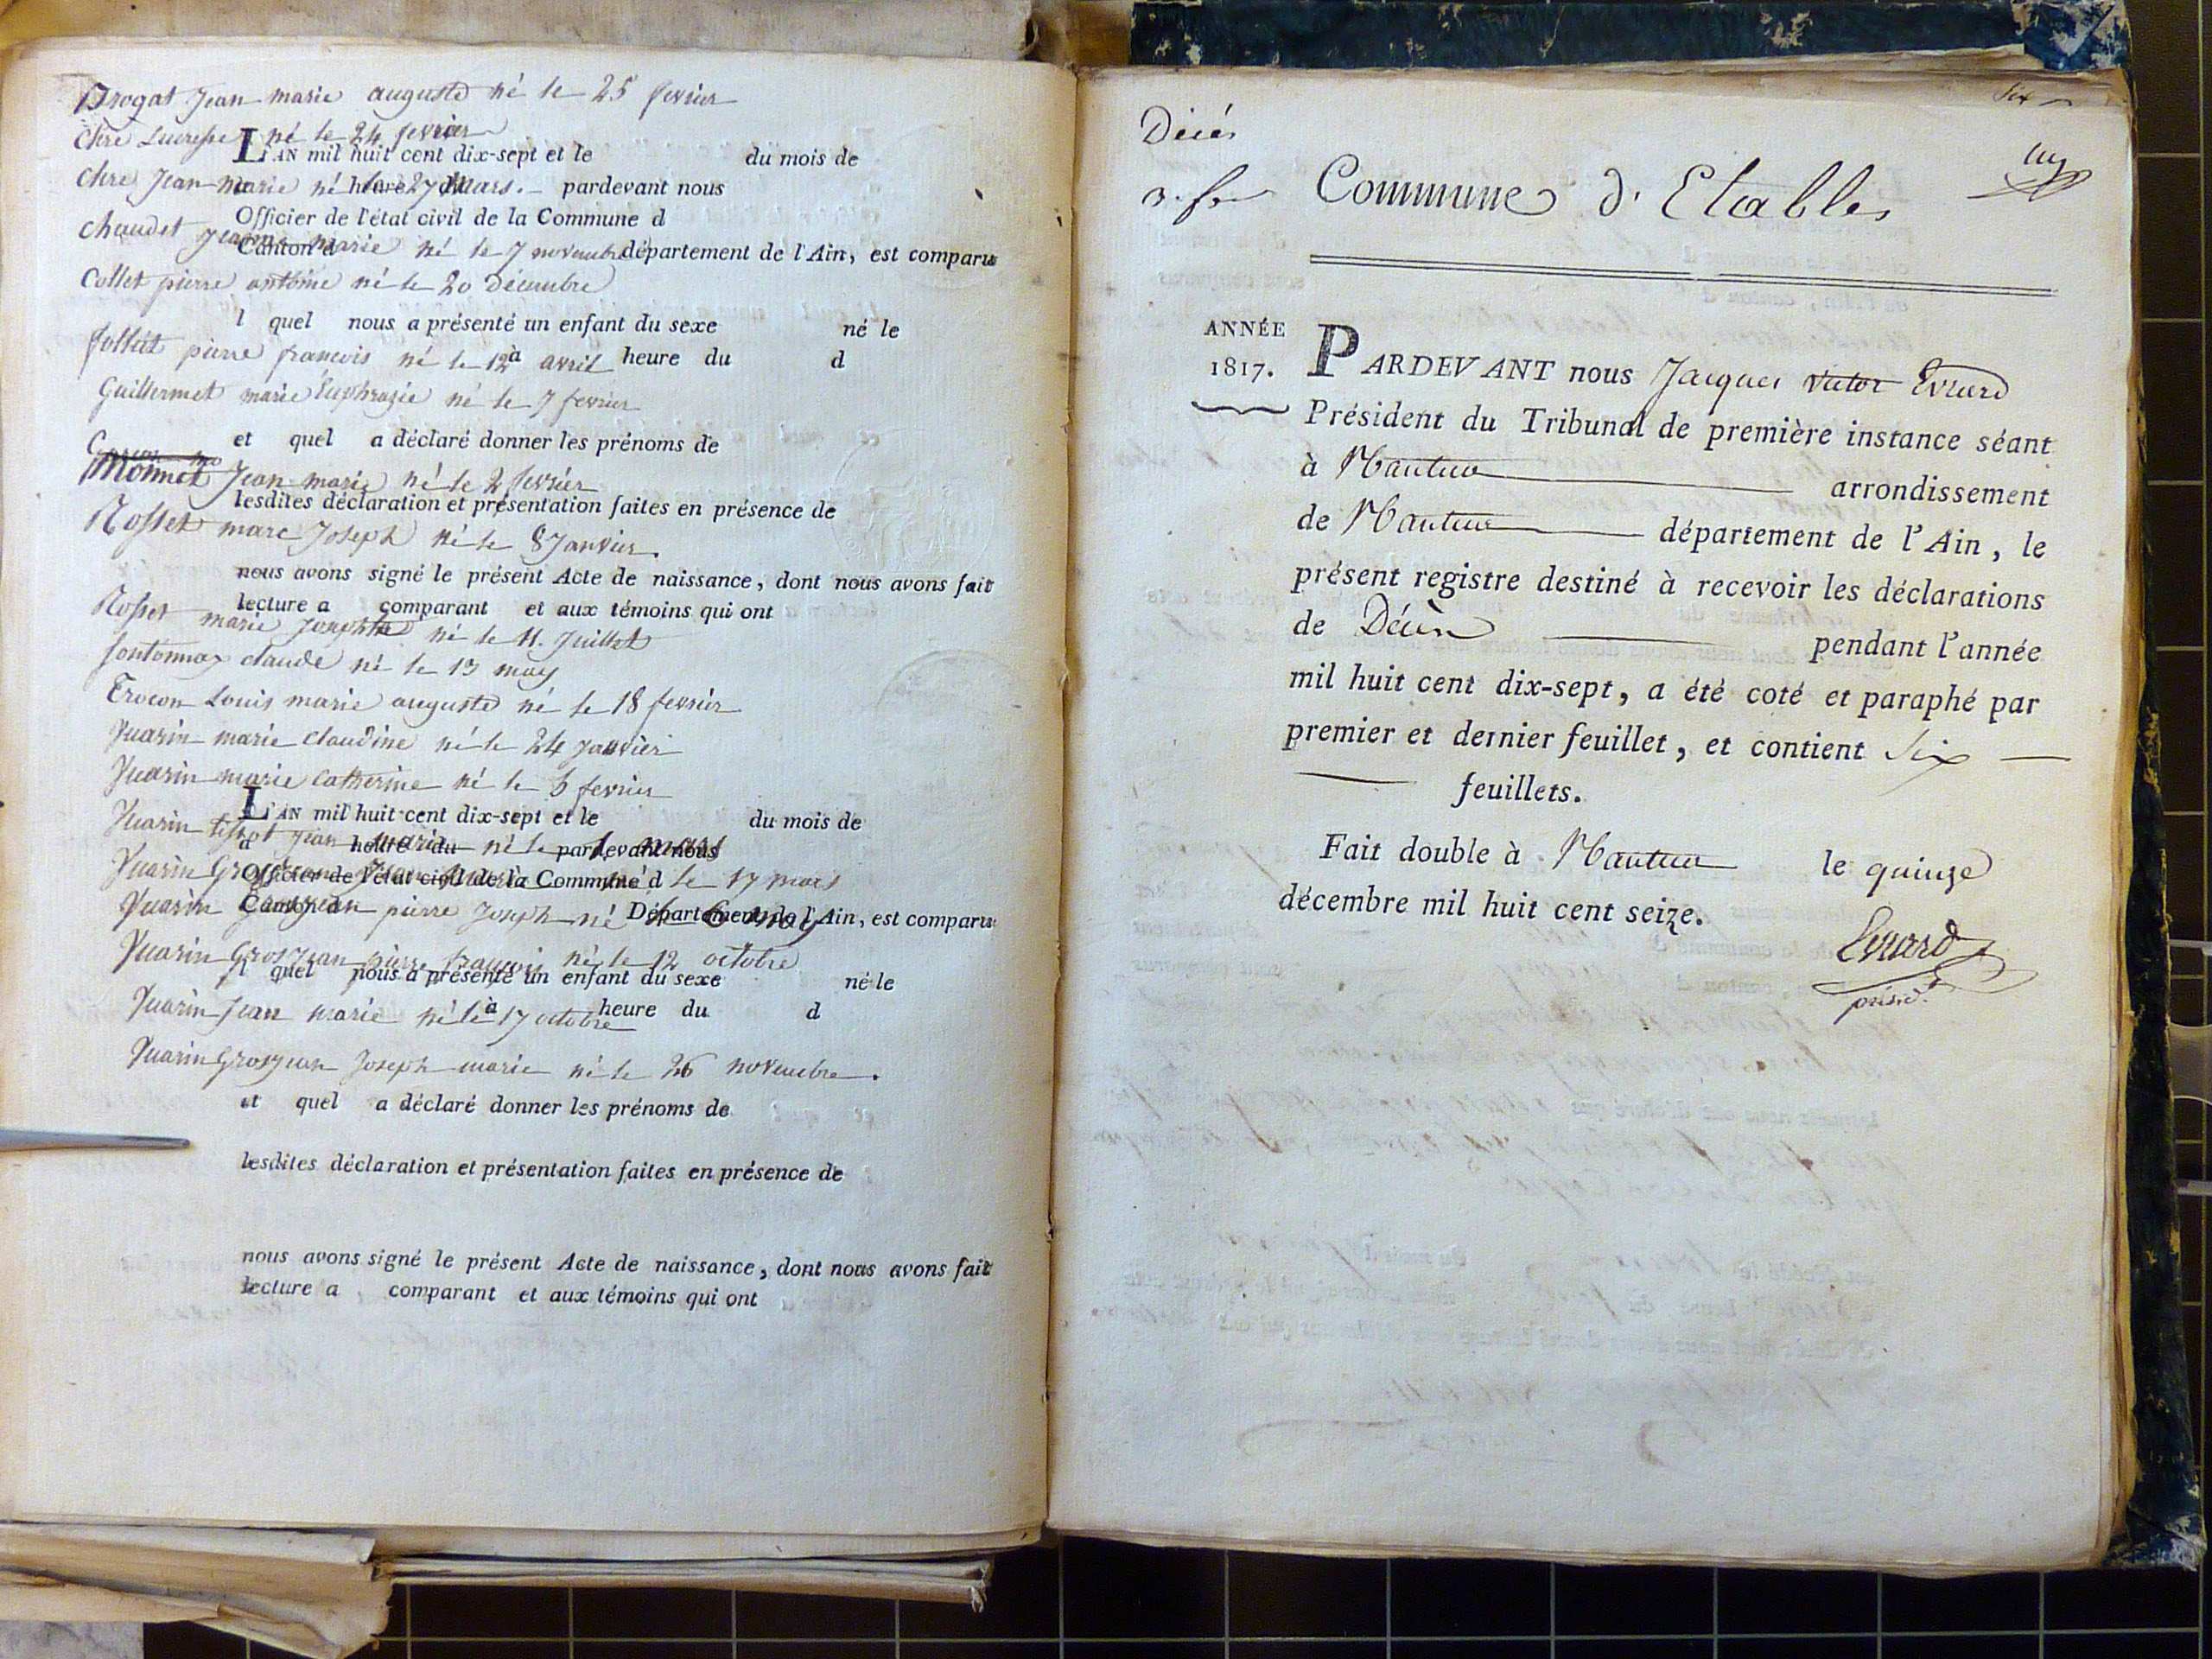 Drogat Jean marie auguste né le 25 fevrier
chre né le 24 fevrier
L'AN mil huit cent dix-sept et le du mois de
chre Jean Marie né le 27 Mars.
à heure du pardevant nous
Officier de l'état civil de la Commune d
chaudet marie né le 7 novembre
Canton d département de l'Ain, est comparu
Collet pierre antoine né le 20 Décembre
l quel nous a présenté un enfant du sexe né le
pierre francois né le 12 avril
à heure du d
Guillermet marie Euphrazie né le 7 fevrier
et quel a déclaré donner les prénoms de
Jean marie né le 2 fevrier
lesdites déclaration et présentation faites en présence de
Rosset marc Joseph né le 8 Janvier.
nous avons signé le présent Acte de naissance, dont nous avons fait
lecture a comparant et aux témoins qui ont
Rosset marie né le 11. Juillet
claude né le 13 may
Trocon Louis marie auguste né le 18 fevrier
Juarin marie Claudine né le 24 Janvier
Juarin marie Catherine né le 6 fevrier
L'AN mil huit cent dix-sept et le du mois de
Juarin tissot Jean marie né le mars
à heure du pardevant nous
Juarin né le 17 mars
Officier de l'état civil de la Commune d
Juarin Grosjean pierre Joseph né le 6 may
Canton d Département de l'Ain, est comparu
Juarin Grosjean pierre françois né le 12 octobre
l quel nous a présenté un enfant du sexe né le
Juarin Jean marie né le 17 octobre
à heure du d
Juarin Grosjean Joseph marie né le 26 novembre.
et quel a déclaré donner les prénoms de
lesdites déclaration et présentation faites en présence de
nous avons signé le présent Acte de naissance, dont nous avons fait
lecture a comparant et aux témoins qui ont
Six
Décés
Commune d'Etables
ANNÉE
1817.
PARDEVANT nous Jacques Victor Evrard
Président du Tribunal de première instance séant
à Nantua arrondissement
de Nantua département de l'Ain, le
présent registre destiné à recevoir les déclarations
de Décès pendant l'année
mil huit cent dix-sept, a été coté et paraphé par
premier et dernier feuillet, et contient Six
feuillets.
Fait double à Nantua le quinze
décembre mil huit cent seize.
Evrard
présid.t